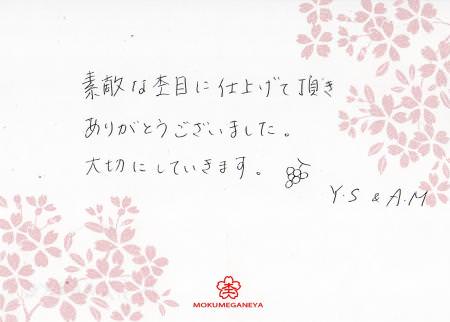 素敵な杢目に仕上げて頂き
ありがとうございました。
大切にしていきます。
Y.S & A.M
MOKUMEGANEYA